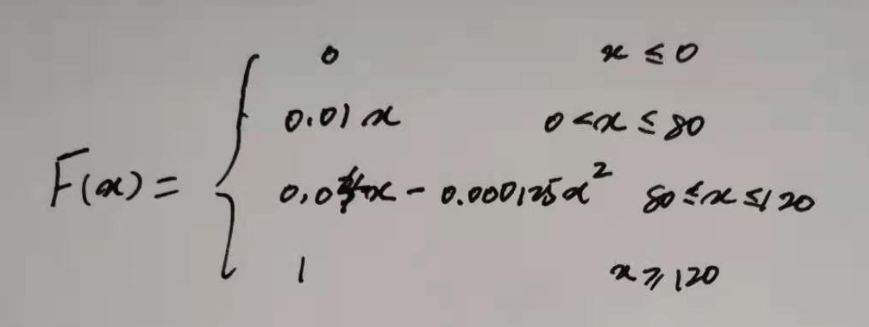 0 x ≤ 0
0.01x 0 < x ≤ 80
F(x) =
x - 0.000125x² 80 ≤ x ≤ 120
1 x ≥ 120